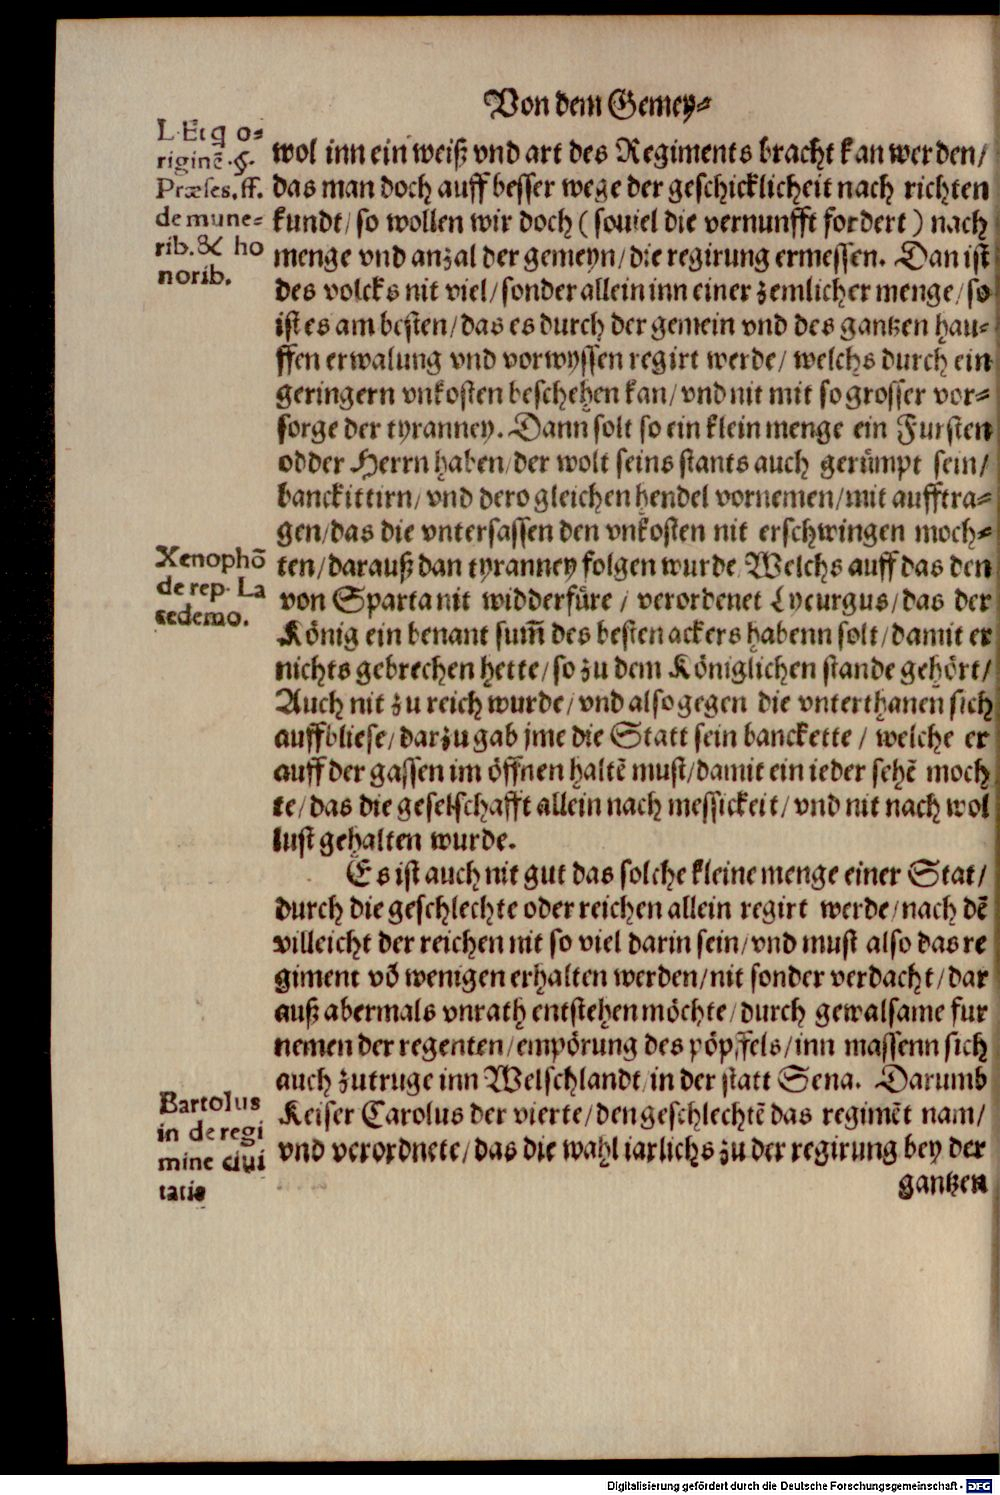 Von dem Gemey⸗
L. Et q̄ o⸗
riginē .§.
Præses. ff.
de mune⸗
rib. & ho
norib.
wol inn ein weiß vnd art des Regiments bracht kan werden/
das man doch auff besser wege der geschicklicheit nach richten
kundt/ so wollen wir doch ( souiel die vernunfft fordert ) nach
menge vnd anzal der gemeyn/ die regirung ermessen. Dan ist
des volcks nit viel/ sonder allein inn einer zemlicher menge/ so
ist es am besten/ das es durch der gemein vnd des gantzen hau⸗
ffen erwalung vnd vorwyssen regirt werde/ welchs durch ein
geringern vnkosten beschehen kan/ vnd nit mit so grosser vor⸗
sorge der tyranney. Dann solt so ein klein menge ein Fursten
odder Herrn haben/ der wolt seins stants auch gerümpt sein/
banckittirn/ vnd dero gleichen hendel vornemen/ mit aufftra⸗
gen/ das die vntersassen den vnkosten nit erschwingen moch⸗
Xenophō
de rep. La
cedemo.
ten/ darauß dan tyranney folgen wurde. Welchs auff das den
von Sparta nit widderfüre / verordenet Lycurgus/ das der
König ein benant sum̄ des besten ackers habenn solt/ damit er
nichts gebrechen hette/ so zu dem Königlichen stande gehört/
Auch nit zu reich wurde/ vnd also gegen die vnterthanen sich
auffbliese/ darzu gab jme die Statt sein banckette / welche er
auff der gassen im öffnen haltē must/ damit ein ieder sehē moch
te/ das die geselschafft allein nach messickeit/ vnd nit nach wol
lust gehalten wurde.
Es ist auch nit gut das solche kleine menge einer Stat/
durch die geschlechte oder reichen allein regirt werde/ nach dē
villeicht der reichen nit so viel darin sein/ vnd must also das re
giment vō wenigen erhalten werden/ nit sonder verdacht/ dar
auß abermals vnrath entstehen möchte/ durch gewalsame fur
nemen der regenten/ empörung des pöpffels/ inn massenn sich
auch zutruge inn Welschlandt/ in der statt Sena. Darumb
Bartolus
in de regi
mine ciui
tatis
Keiser Carolus der vierte/ den geschlechtē das regimēt nam/
vnd verordnete/ das die wahl iarlichs zu der regirung bey der
gantzen
Digitalisierung gefördert durch die Deutsche Forschungsgemeinschaft - DFG